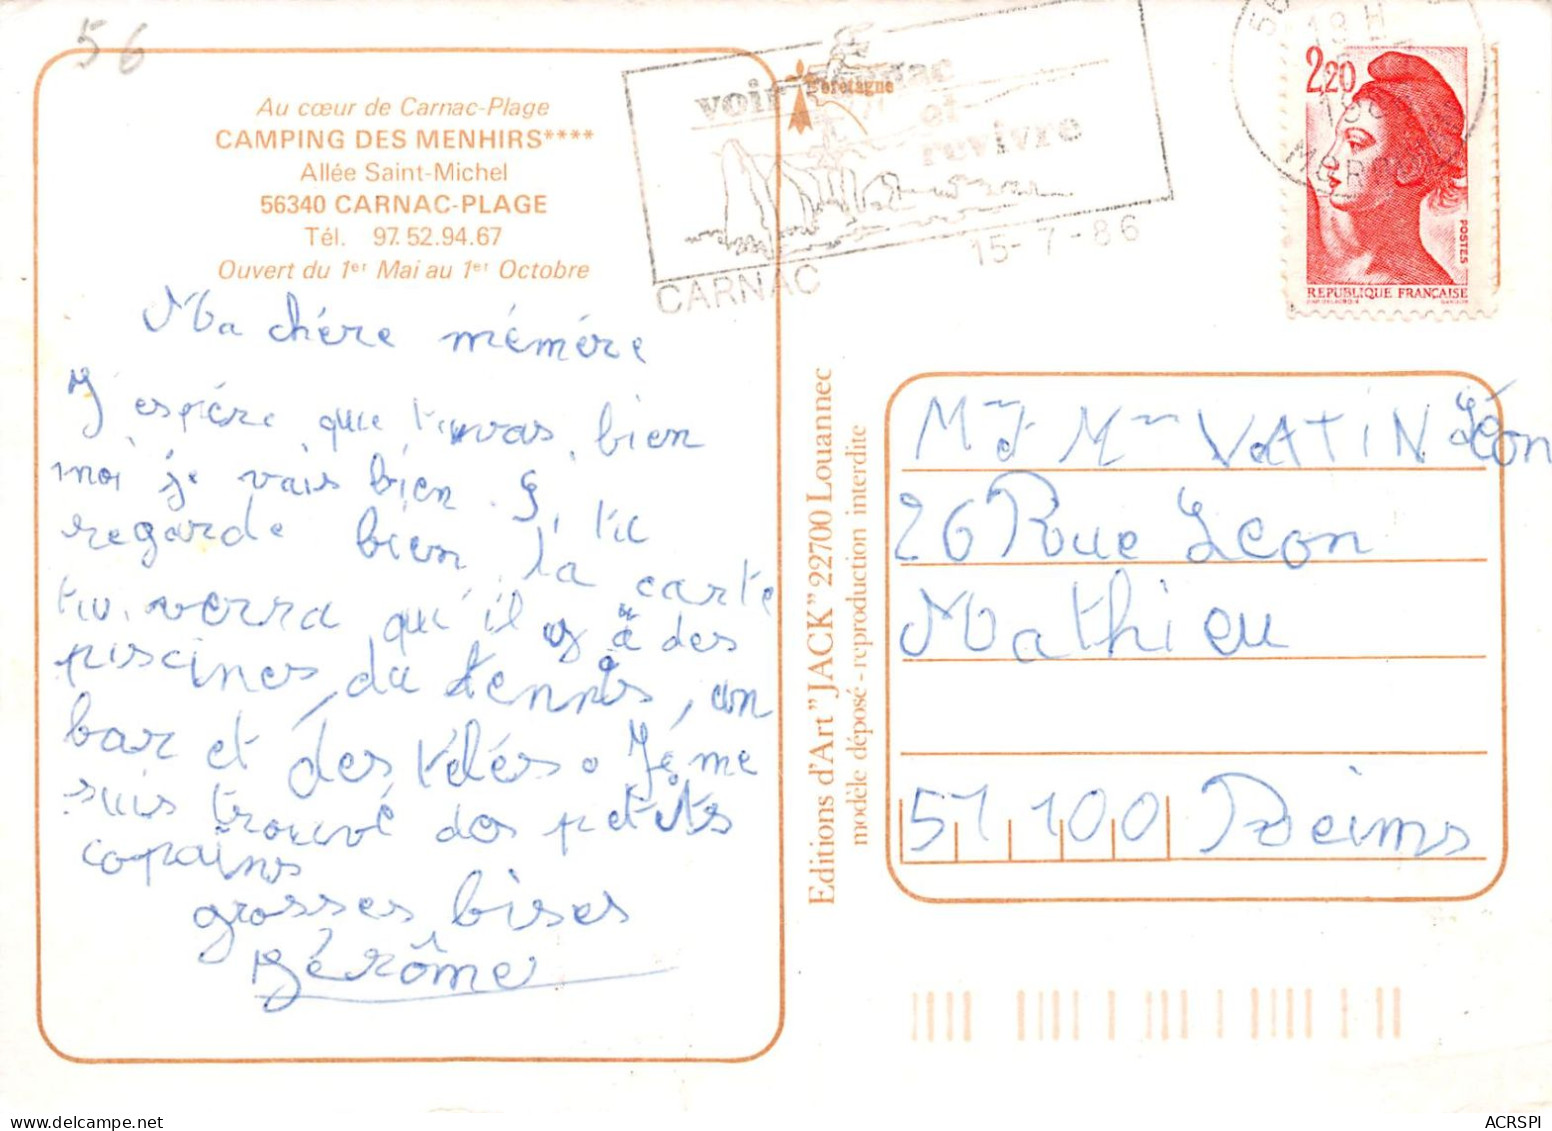 56
Au cœur de Carnac-Plage
CAMPING DES MENHIRS****
Allée Saint-Michel
56340 CARNAC-PLAGE
Tél. 97.52.94.67
Ouvert du 1er Mai au 1er Octobre
Ma chère mémére
J'espére que tu vas bien
moi je vais bien. Si tu
regarde bien la carte
tu verra qu'il y a des
piscines, du tennis, un
bar et des télés. Je me
suis trouvé des petits
copains
grosses bises
Jérôme
bretagne
voir carnac
et
revivre
CARNAC
15-7-86
18H
MORBIHAN
2,20
POSTES
REPUBLIQUE FRANÇAISE
Editions d'Art "JACK" 22700 Louannec
modèle déposé - reproduction interdite
Mr Mme VATIN Léon
26 Rue Léon
Mathieu
51 100 Reims
ACRSPI